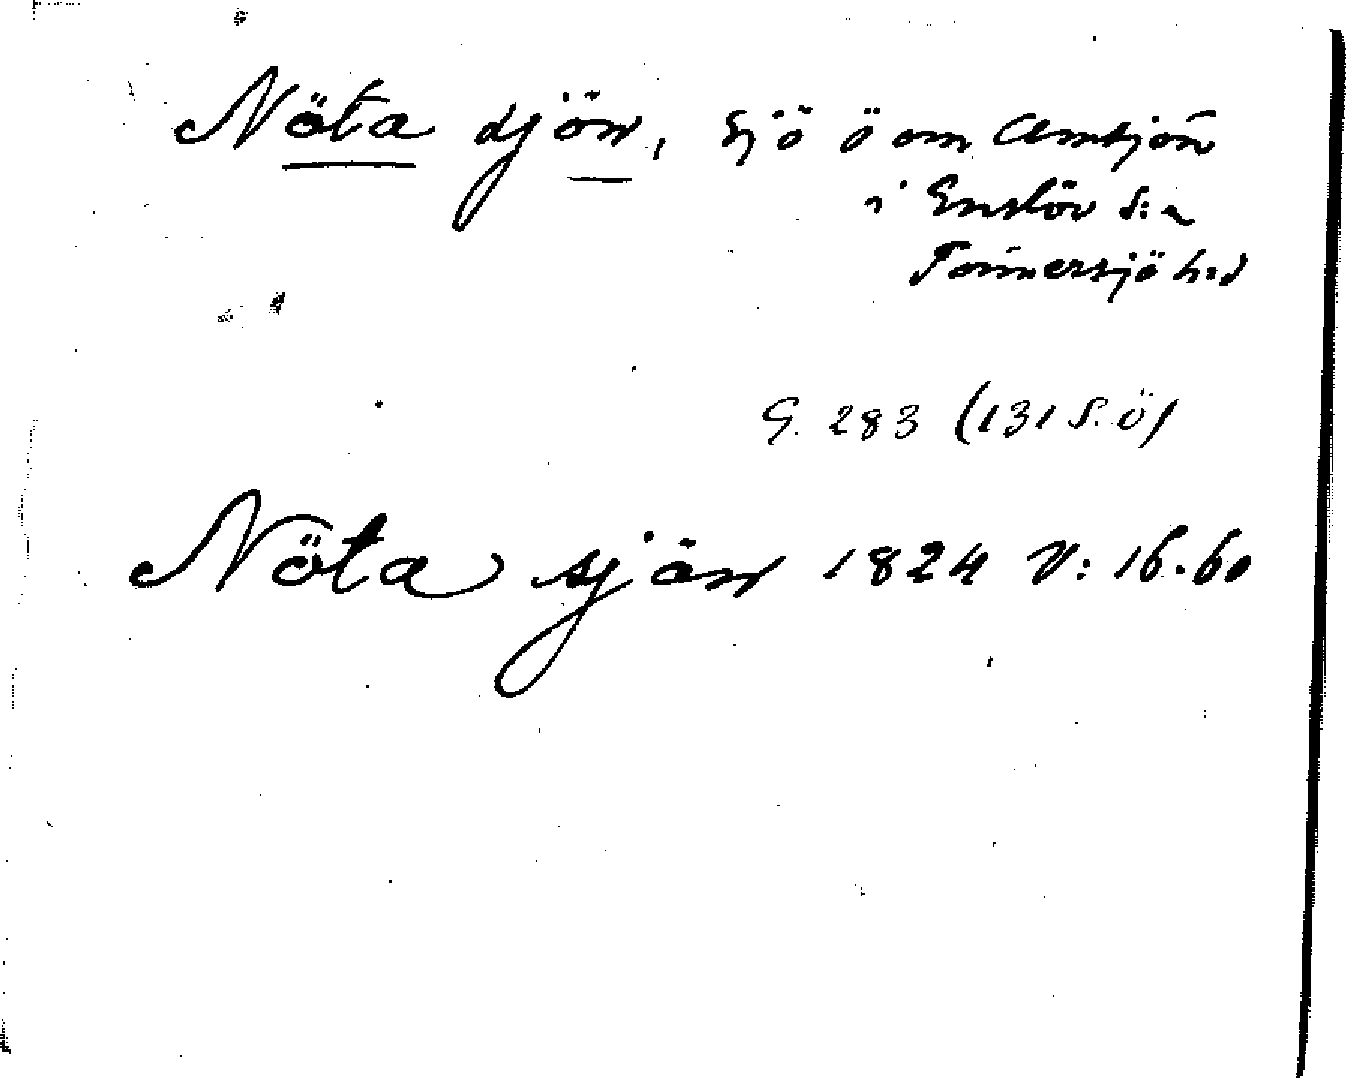 Nöta sjön, Sjö ö om Amsjön
i Enslöv s:n
Tönnersjö h:d
G. 283 (131 S. Ö)
Nöta sjön 1824 V: 16.60